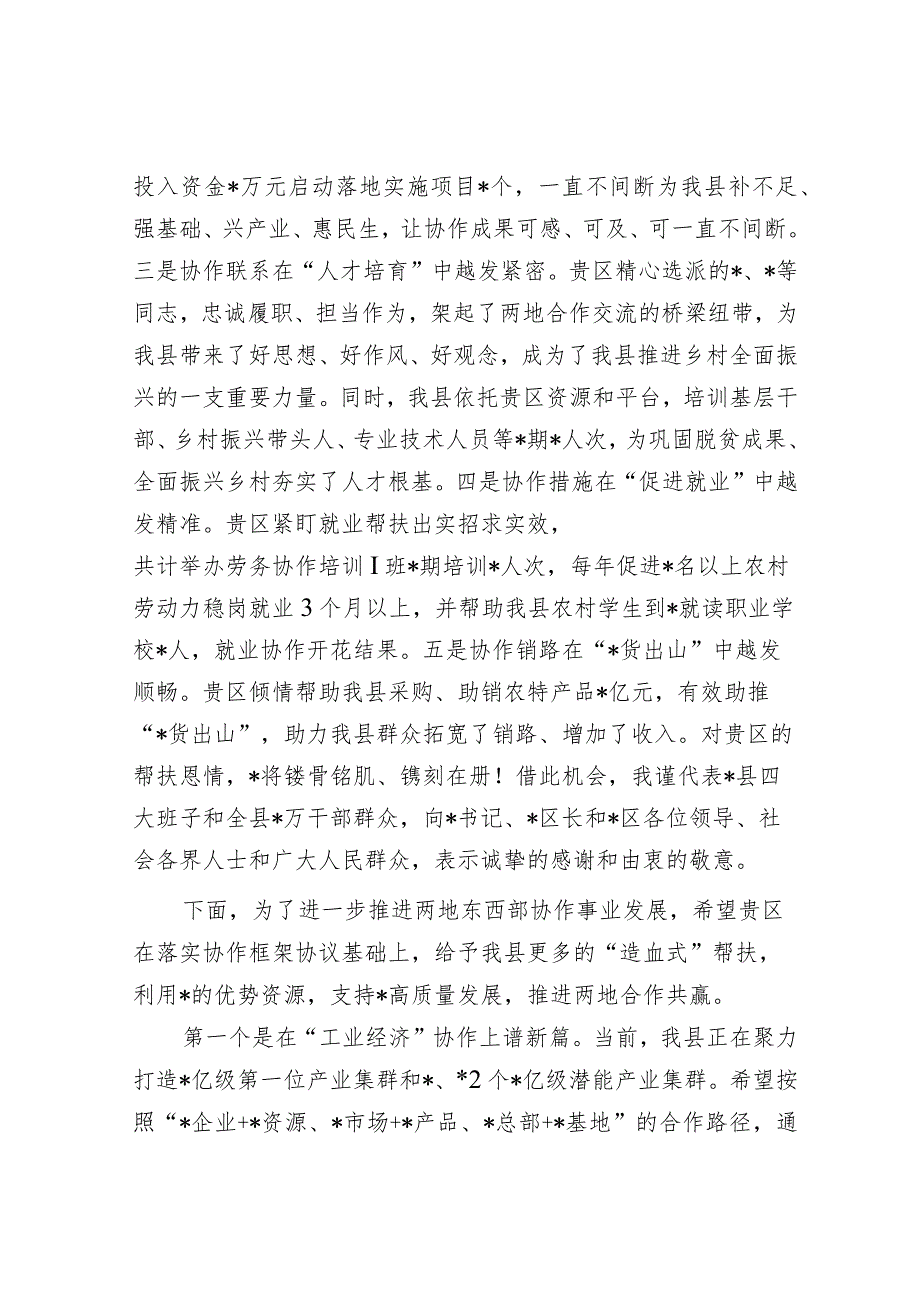 投入资金*万元启动落地实施项目*个，一直不间断为我县补不足、
强基础、兴产业、惠民生，让协作成果可感、可及、可一直不间断。
三是协作联系在“人才培育”中越发紧密。贵区精心选派的*、*等
同志，忠诚履职、担当作为，架起了两地合作交流的桥梁纽带，为
我县带来了好思想、好作风、好观念，成为了我县推进乡村全面振
兴的一支重要力量。同时，我县依托贵区资源和平台，培训基层干
部、乡村振兴带头人、专业技术人员等*期*人次，为巩固脱贫成果、
全面振兴乡村夯实了人才根基。四是协作措施在“促进就业”中越
发精准。贵区紧盯就业帮扶出实招求实效，
共计举办劳务协作培训I班*期培训*人次，每年促进*名以上农村
劳动力稳岗就业3个月以上，并帮助我县农村学生到*就读职业学
校*人，就业协作开花结果。五是协作销路在“*货出山”中越发
顺畅。贵区倾情帮助我县采购、助销农特产品*亿元，有效助推
“*货出山”，助力我县群众拓宽了销路、增加了收入。对贵区的
帮扶恩情，*将镂骨铭肌、镌刻在册！借此机会，我谨代表*县四
大班子和全县*万干部群众，向*书记、*区长和*区各位领导、社
会各界人士和广大人民群众，表示诚挚的感谢和由衷的敬意。
下面，为了进一步推进两地东西部协作事业发展，希望贵区
在落实协作框架协议基础上，给予我县更多的“造血式”帮扶，
利用*的优势资源，支持*高质量发展，推进两地合作共赢。
第一个是在“工业经济”协作上谱新篇。当前，我县正在聚力
打造*亿级第一位产业集群和*、*2个*亿级潜能产业集群。希望按
照“*企业+*资源、*市场+*产品、*总部+*基地”的合作路径，通